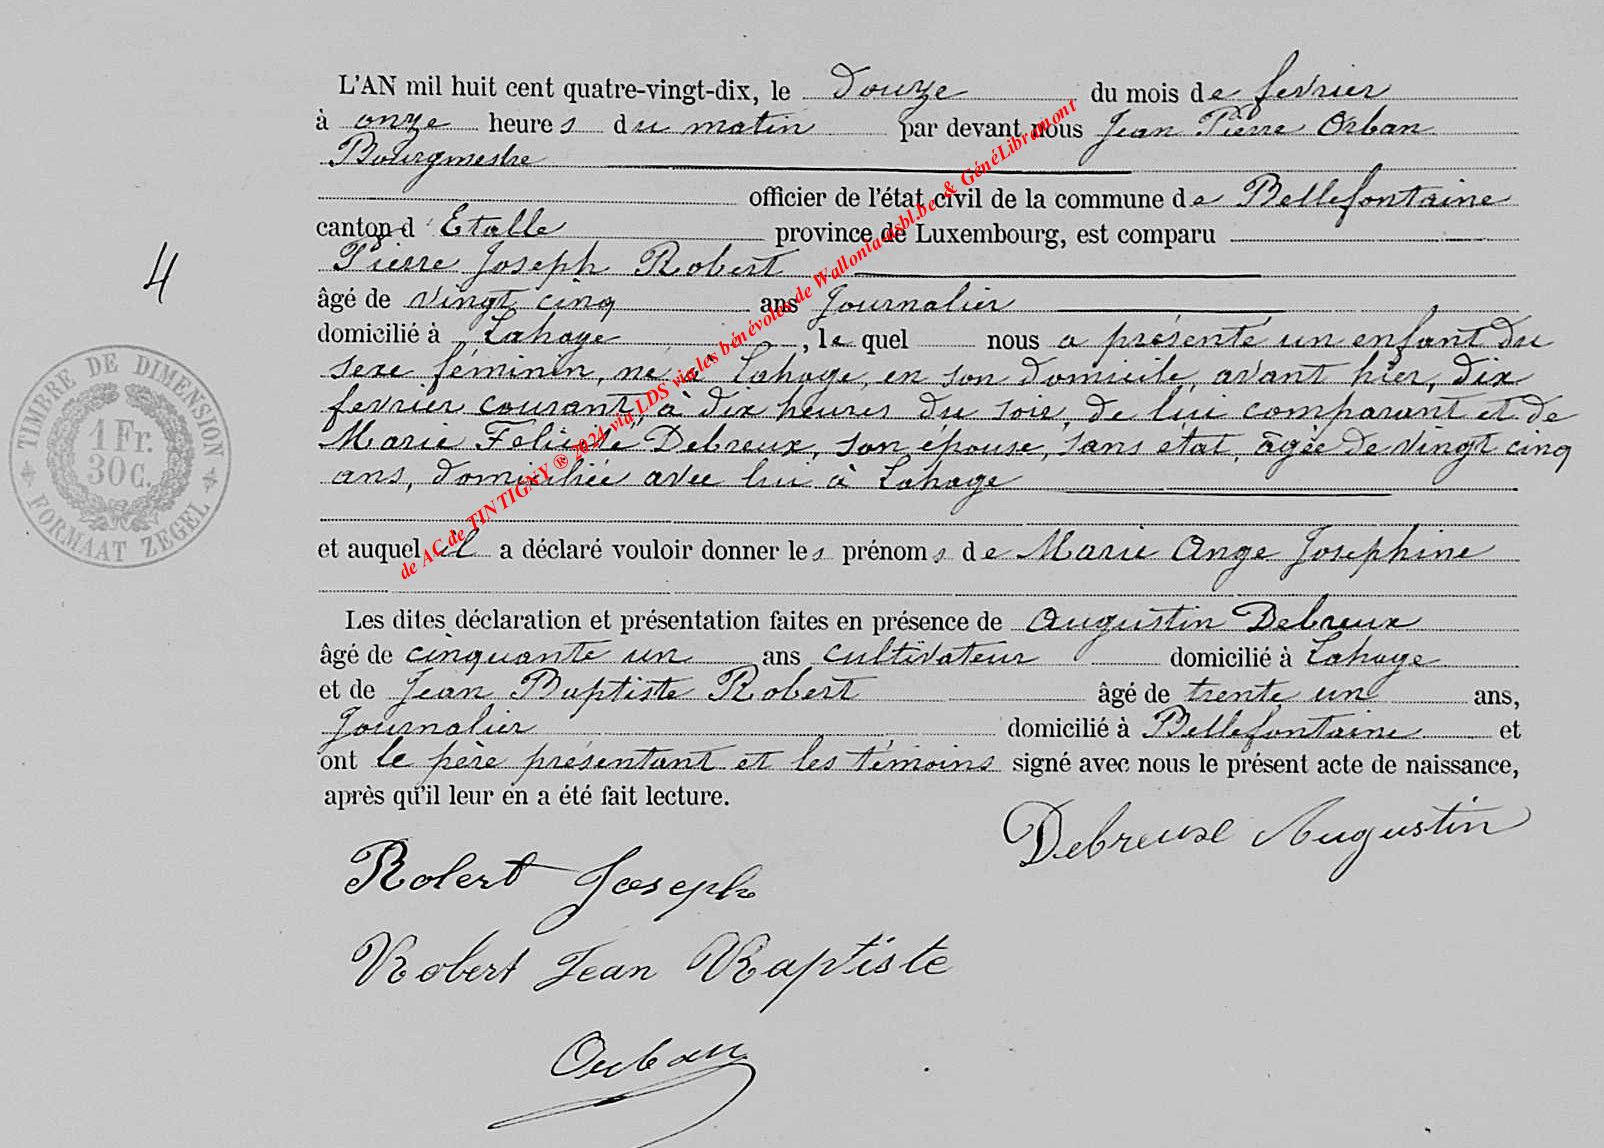 L'AN mil huit cent quatre-vingt-dix, le Douze du mois de fevrier
à onze heures du matin par devant nous Jean Pierre Orban
Bourgmestre
officier de l'état civil de la commune de Bellefontaine
canton d'Etalle province de Luxembourg, est comparu
Pierre Joseph Robert
âgé de vingt cinq ans Journalier
domicilié à Lahage, le quel nous a présenté un enfant du
sexe féminin, né à Lahage, en son domicile, avant hier, dix
fevrier courant, à dix heures du soir, de lui comparant et de
Marie Félicité Debreux, son épouse, sans état, âgée de vingt cinq
ans, domiciliée avec lui à Lahage
et auquel il a déclaré vouloir donner les prénoms de Marie Ange Josephine
Les dites déclaration et présentation faites en présence de Augustin Debreux
âgé de cinquante un ans cultivateur domicilié à Lahage
et de Jean Baptiste Robert âgé de trente un ans,
Journalier domicilié à Bellefontaine et
ont le père présentant et les témoins signé avec nous le présent acte de naissance,
après qu'il leur en a été fait lecture.
Debreuxe Augustin
Robert Joseph
Robert Jean Baptiste
Orban
4
TIMBRE DE DIMENSION
1 Fr.
30 C.
FORMAAT ZEGEL
de AC de TINTIGNY ® 2024 via LDS via les bénévoles de Wallonia-asbl.be & GénéLibramont